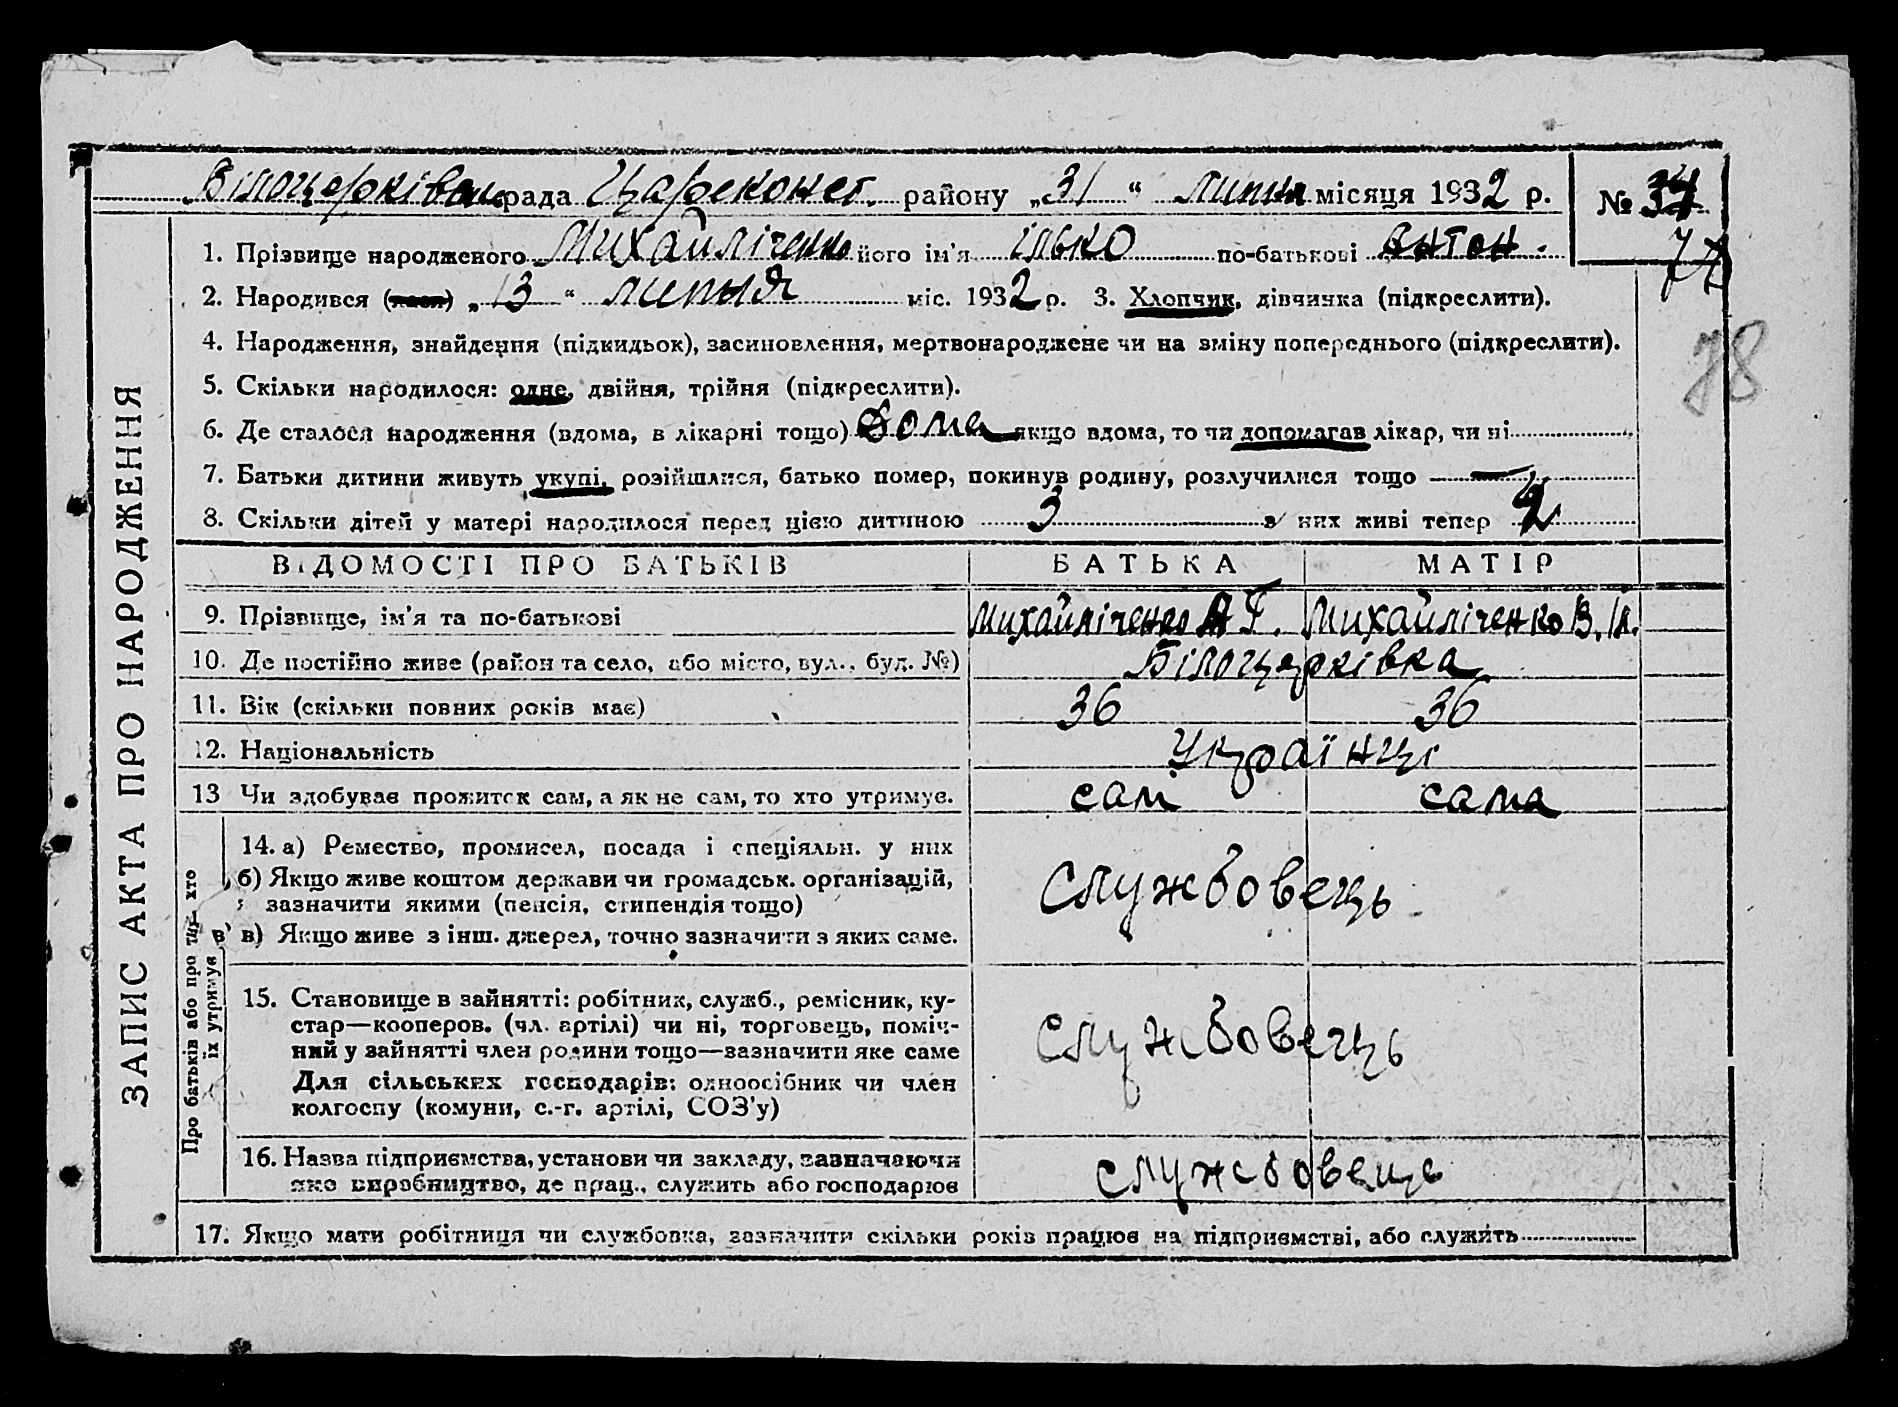 Білоцерківськ рада Цареконст. району „31“ липня місяця 1932 р. № 34
77
78
ЗАПИС АКТА ПРО НАРОДЖЕННЯ
1. Прізвище народженого Михайліченко його ім'я Ілько по-батькові Антон.
2. Народився (лася) „13“ липня міс. 1932 р. 3. Хлопчик, дівчинка (підкреслити).
4. Народження, знайдення (підкидьок), засиновлення, мертвонароджене чи на зміну попереднього (підкреслити).
5. Скільки народилося: одне, двійня, трійня (підкреслити).
6. Де сталося народження (вдома, в лікарні тощо) Дома якщо вдома, то чи допомагав лікар, чи ні
7. Батьки дитини живуть укупі, розійшлися, батько помер, покинув родину, розлучилися тощо —
8. Скільки дітей у матері народилося перед цією дитиною 3 з них живі тепер
ВІДОМОСТІ ПРО БАТЬКІВ БАТЬКА МАТІР
9. Прізвище, ім'я та по-батькові Михайліченко А Г. Михайліченко В.
10. Де постійно живе (район та село, або місто, вул., буд. №) Білоцерківка
11. Вік (скільки повних років має) 36 36
12. Національність Українці
13 Чи здобуває прожиток сам, а як не сам, то хто утримує. сам сама
Про батьків або про тих— хто їх утримує
14. а) Ремество, промисел, посада і спеціяльн. у них
б) Якщо живе коштом держави чи громадськ. організацій,
зазначити якими (пенсія, стипендія тощо) Службовець
в) Якщо живе з інш. джерел, точно зазначити з яких саме.
15. Становище в зайнятті: робітник, служб., ремісник, ку-
стар—кооперов. (чл. артілі) чи ні, торговець, поміч-
ний у зайнятті член родини тощо—зазначити яке саме Службовець
Для сільських господарів: одноосібник чи член
колгоспу (комуни, с.-г. артілі, СОЗ'у)
16. Назва підприємства, установи чи закладу, зазначаючи
яке виробництво, де прац., служить або господарює службовець
17. Якщо мати робітниця чи службовка, зазначити скільки років працює на підприємстві, або служить